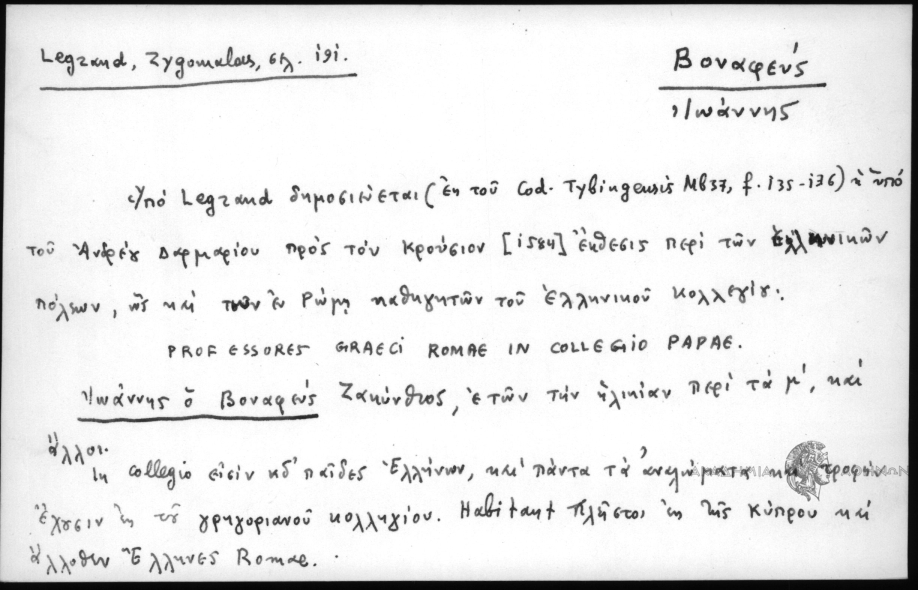 Legrand, Zygomalas, σελ. 191.
Βοναφεύς
Ἰωάννης
Ὑπό Legrand δημοσιεύεται (ἐκ τοῦ Cod. Tybingensis Mb37, f. 135-136) ἡ ὑπό
τοῦ Ἀνδρέου Δαρμαρίου πρός τόν Κρούσιον [1584] ἔκθεσις περί τῶν ἑλληνικῶν
πόλεων, ὡς καί τῶν ἐν Ρώμῃ καθηγητῶν τοῦ Ἑλληνικοῦ κολλεγίου:
PROFESSORES GRAECI ROMAE IN COLLEGIO PAPAE.
Ἰωάννης ὁ Βοναφεύς Ζακύνθιος, ἐτῶν τήν ἡλικίαν περί τά μ', καί
ἄλλοι.
In collegio εἰσίν κδ' παῖδες Ἑλλήνων, καί πάντα τά ἀναλώματα καί τροφήν
ἔχουσιν ἐκ τοῦ γρηγοριανοῦ κολληγίου. Habitant πλῆστοι ἐκ τῆς Κύπρου καί
ἄλλοθεν Ἕλληνες Romae.